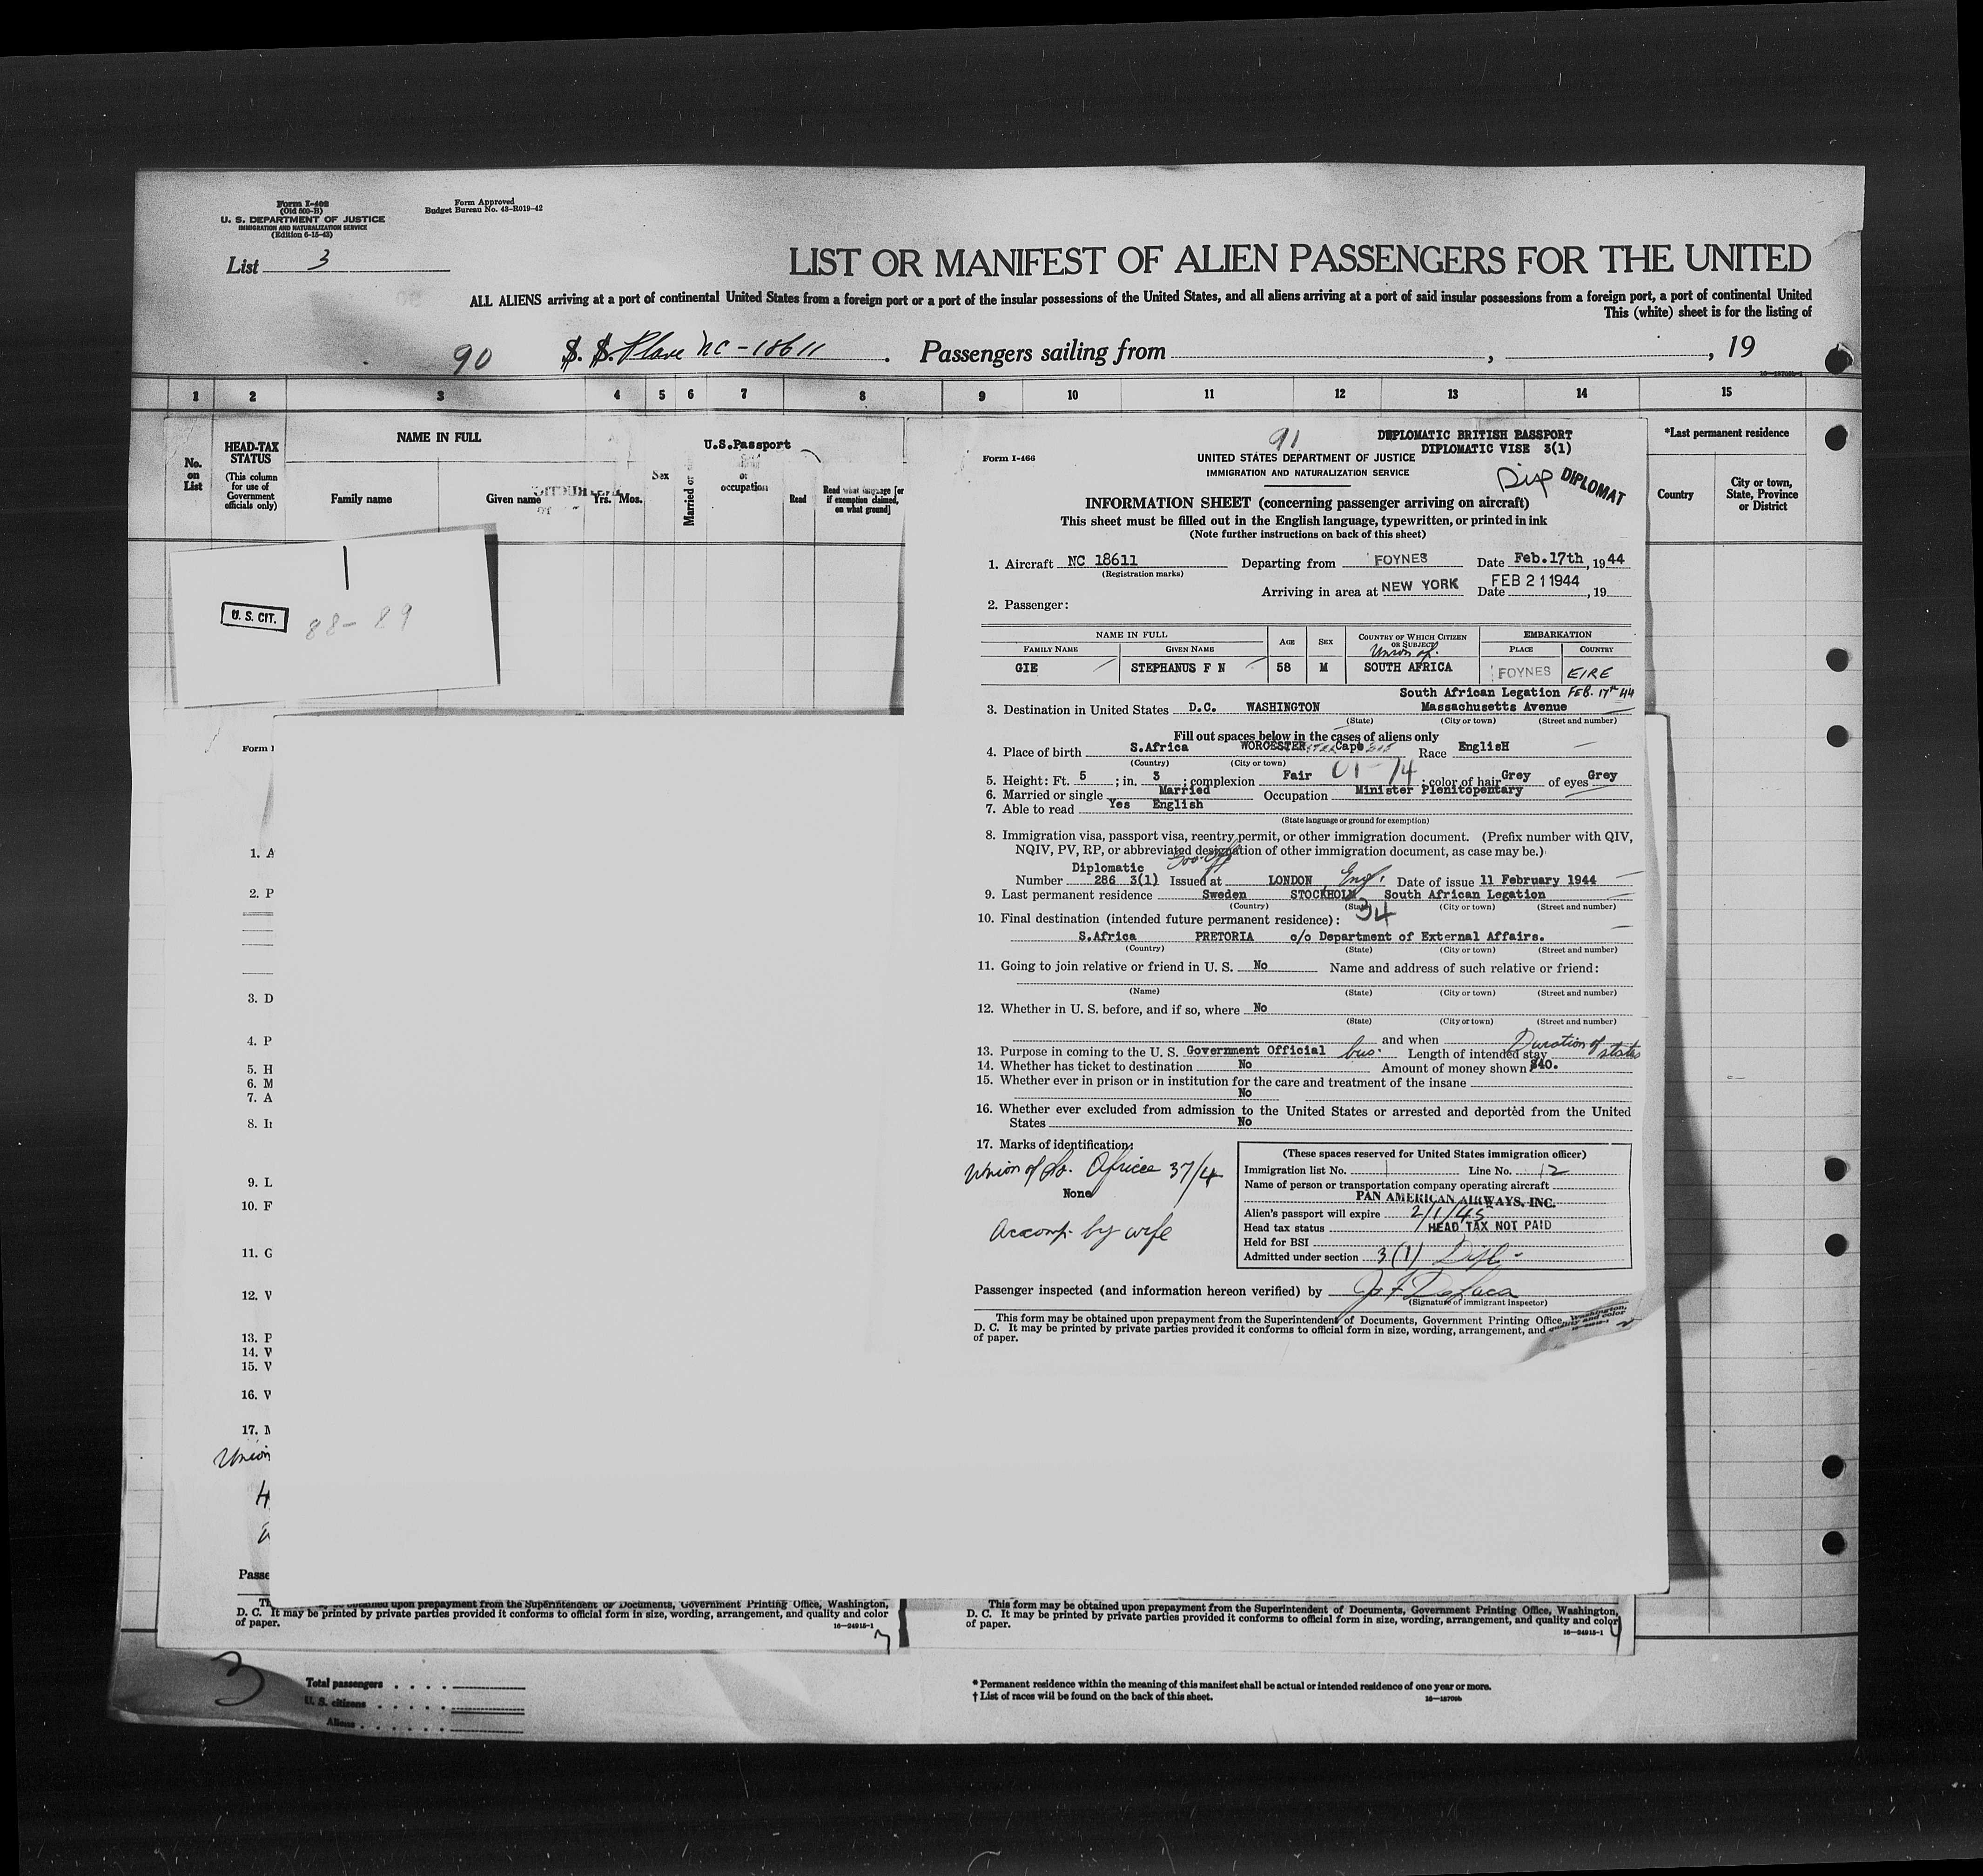 Form I-408
(Old 500-B)
U. S. DEPARTMENT OF JUSTICE
IMMIGRATION AND NATURALIZATION SERVICE
(Edition 6-15-43)
Form Approved
Budget Bureau No. 43-R019-42
List 3
LIST OR MANIFEST OF ALIEN PASSENGERS FOR THE UNITED
ALL ALIENS arriving at a port of continental United States from a foreign port or a port of the insular possessions of the United States, and all aliens arriving at a port of said insular possessions from a foreign port, a port of continental United
This (white) sheet is for the listing of
90 S. S. Plane NC-18611 . Passengers sailing from , , 19
1 2 3 4 5 6 7 8 9 10 11 12 13 14 15
No. on List
HEAD-TAX STATUS
(This column for use of Government officials only)
NAME IN FULL
Family name Given name
Yrs. Mos.
Sex
Married or
U.S.Passport
or
occupation
Read
Read what language [or if exemption claimed, on what ground]
*Last permanent residence
Country
City or town, State, Province or District
U. S. CIT.
88-89
91
DIPLOMATIC BRITISH PASSPORT
DIPLOMATIC VISE 3(1)
Form I-466
UNITED STATES DEPARTMENT OF JUSTICE
IMMIGRATION AND NATURALIZATION SERVICE
Dip DIPLOMAT
INFORMATION SHEET (concerning passenger arriving on aircraft)
This sheet must be filled out in the English language, typewritten, or printed in ink
(Note further instructions on back of this sheet)
1. Aircraft NC 18611 Departing from FOYNES Date Feb.17th, 1944
(Registration marks)
Arriving in area at NEW YORK Date FEB 21 1944, 19
2. Passenger:
NAME IN FULL
FAMILY NAME GIVEN NAME
AGE SEX
COUNTRY OF WHICH CITIZEN OR SUBJECT
EMBARKATION
PLACE COUNTRY
Union of
GIE STEPHANUS F N 58 M SOUTH AFRICA FOYNES EIRE
South African Legation FEB. 17th 44
3. Destination in United States D.C. WASHINGTON Massachusetts Avenue
(State) (City or town) (Street and number)
Fill out spaces below in the cases of aliens only
4. Place of birth S.Africa WORCESTER Cape Race EnglisH
(Country) (City or town)
5. Height: Ft. 5 ; in. 3 ; complexion Fair ; color of hair Grey of eyes Grey
6. Married or single Married Occupation Minister Plenitopentary
7. Able to read Yes English
(State language or ground for exemption)
8. Immigration visa, passport visa, reentry permit, or other immigration document. (Prefix number with QIV,
NQIV, PV, RP, or abbreviated designation of other immigration document, as case may be.)
Diplomatic
Number 286 3(1) Issued at LONDON Eng. Date of issue 11 February 1944
9. Last permanent residence Sweden STOCKHOLM South African Legation
(Country) (State) (City or town) (Street and number)
34
10. Final destination (intended future permanent residence):
S.Africa PRETORIA c/o Department of External Affairs.
(Country) (State) (City or town) (Street and number)
11. Going to join relative or friend in U. S. No Name and address of such relative or friend:
(Name) (State) (City or town) (Street and number)
12. Whether in U. S. before, and if so, where No
(State) (City or town) (Street and number)
and when
13. Purpose in coming to the U. S. Government Official bus. Length of intended stay Duration of status
14. Whether has ticket to destination No Amount of money shown $40.
15. Whether ever in prison or in institution for the care and treatment of the insane
No
16. Whether ever excluded from admission to the United States or arrested and deported from the United
States No
17. Marks of identification:
Union of So. Africa 37/4
None
Accomp. by wife
(These spaces reserved for United States immigration officer)
Immigration list No. 1 Line No. 12
Name of person or transportation company operating aircraft
PAN AMERICAN AIRWAYS, INC.
Alien's passport will expire 2/1/45
Head tax status HEAD TAX NOT PAID
Held for BSI
Admitted under section 3(1) Dipl.
Passenger inspected (and information hereon verified) by
(Signature of immigrant inspector)
This form may be obtained upon prepayment from the Superintendent of Documents, Government Printing Office, Washington,
D. C. It may be printed by private parties provided it conforms to official form in size, wording, arrangement, and quality and color
of paper.
2
Form I
1. A
2. P
3. D
4. P
5. H
6. M
7. A
8. I
9. L
10. F
11. G
12. W
13. P
14. W
15. W
16. W
17. M
Union
Passe
obtained upon prepayment from the Superintendent of Documents, Government Printing Office, Washington,
D. C. It may be printed by private parties provided it conforms to official form in size, wording, arrangement, and quality and color
of paper.
16—24915-1
3
This form may be obtained upon prepayment from the Superintendent of Documents, Government Printing Office, Washington,
D. C. It may be printed by private parties provided it conforms to official form in size, wording, arrangement, and quality and color
of paper.
16—24915-1
4
3
Total passengers . . . .
U. S. citizens . . . . .
Aliens . . . . . .
* Permanent residence within the meaning of this manifest shall be actual or intended residence of one year or more.
† List of races will be found on the back of this sheet.